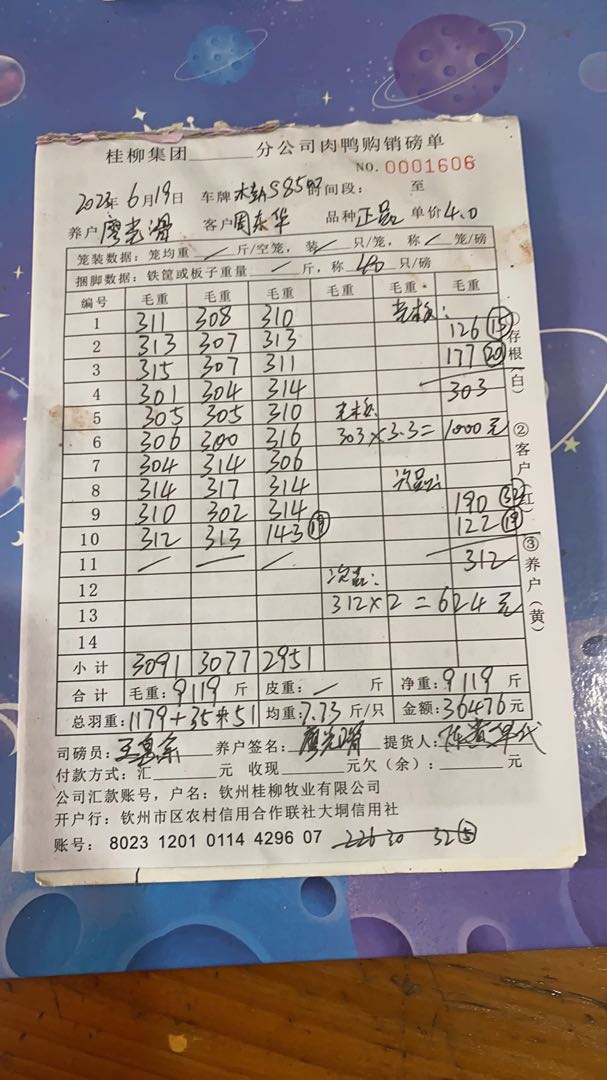 桂柳集团______分公司肉鸭购销磅单
NO. 0001606
2023年6月19日 车牌 S85 时间段: 至
养户 廖光滑 客户 周东华 品种 正品 单价 4.0
笼装数据: 笼均重 / 斤/空笼, 装 / 只/笼, 称 / 笼/磅
捆脚数据: 铁筐或板子重量 / 斤, 称 40 只/磅
编号 毛重 毛重 毛重 毛重 毛重 毛重
1 311 308 310 126 ⑮
2 313 307 313 177 ⑳
3 315 307 311 303
4 301 304 314
5 305 305 310
6 306 300 316 303×3.3=1000元
7 304 314 306
8 314 317 314 次品: 190 ㉜
9 310 302 314 122 ⑲
10 312 313 143 ⑲
11 / / / 312
12 次品:
13 312×2=624元
14
小计 3091 3077 2951
合计 毛重: 9119 斤 皮重: / 斤 净重: 9119 斤
总羽重: 1179+35*51 均重: 7.73 斤/只 金额: 36476 元
司磅员: 养户签名: 廖光滑 提货人:
付款方式: 汇______元 收现______元欠(余): ______元
公司汇款账号, 户名: 钦州桂柳牧业有限公司
开户行: 钦州市区农村信用合作联社大垌信用社
账号: 8023 1201 0114 4296 07 226 30 32 ⑤
①存根(白) ②客户(红) ③养户(黄)